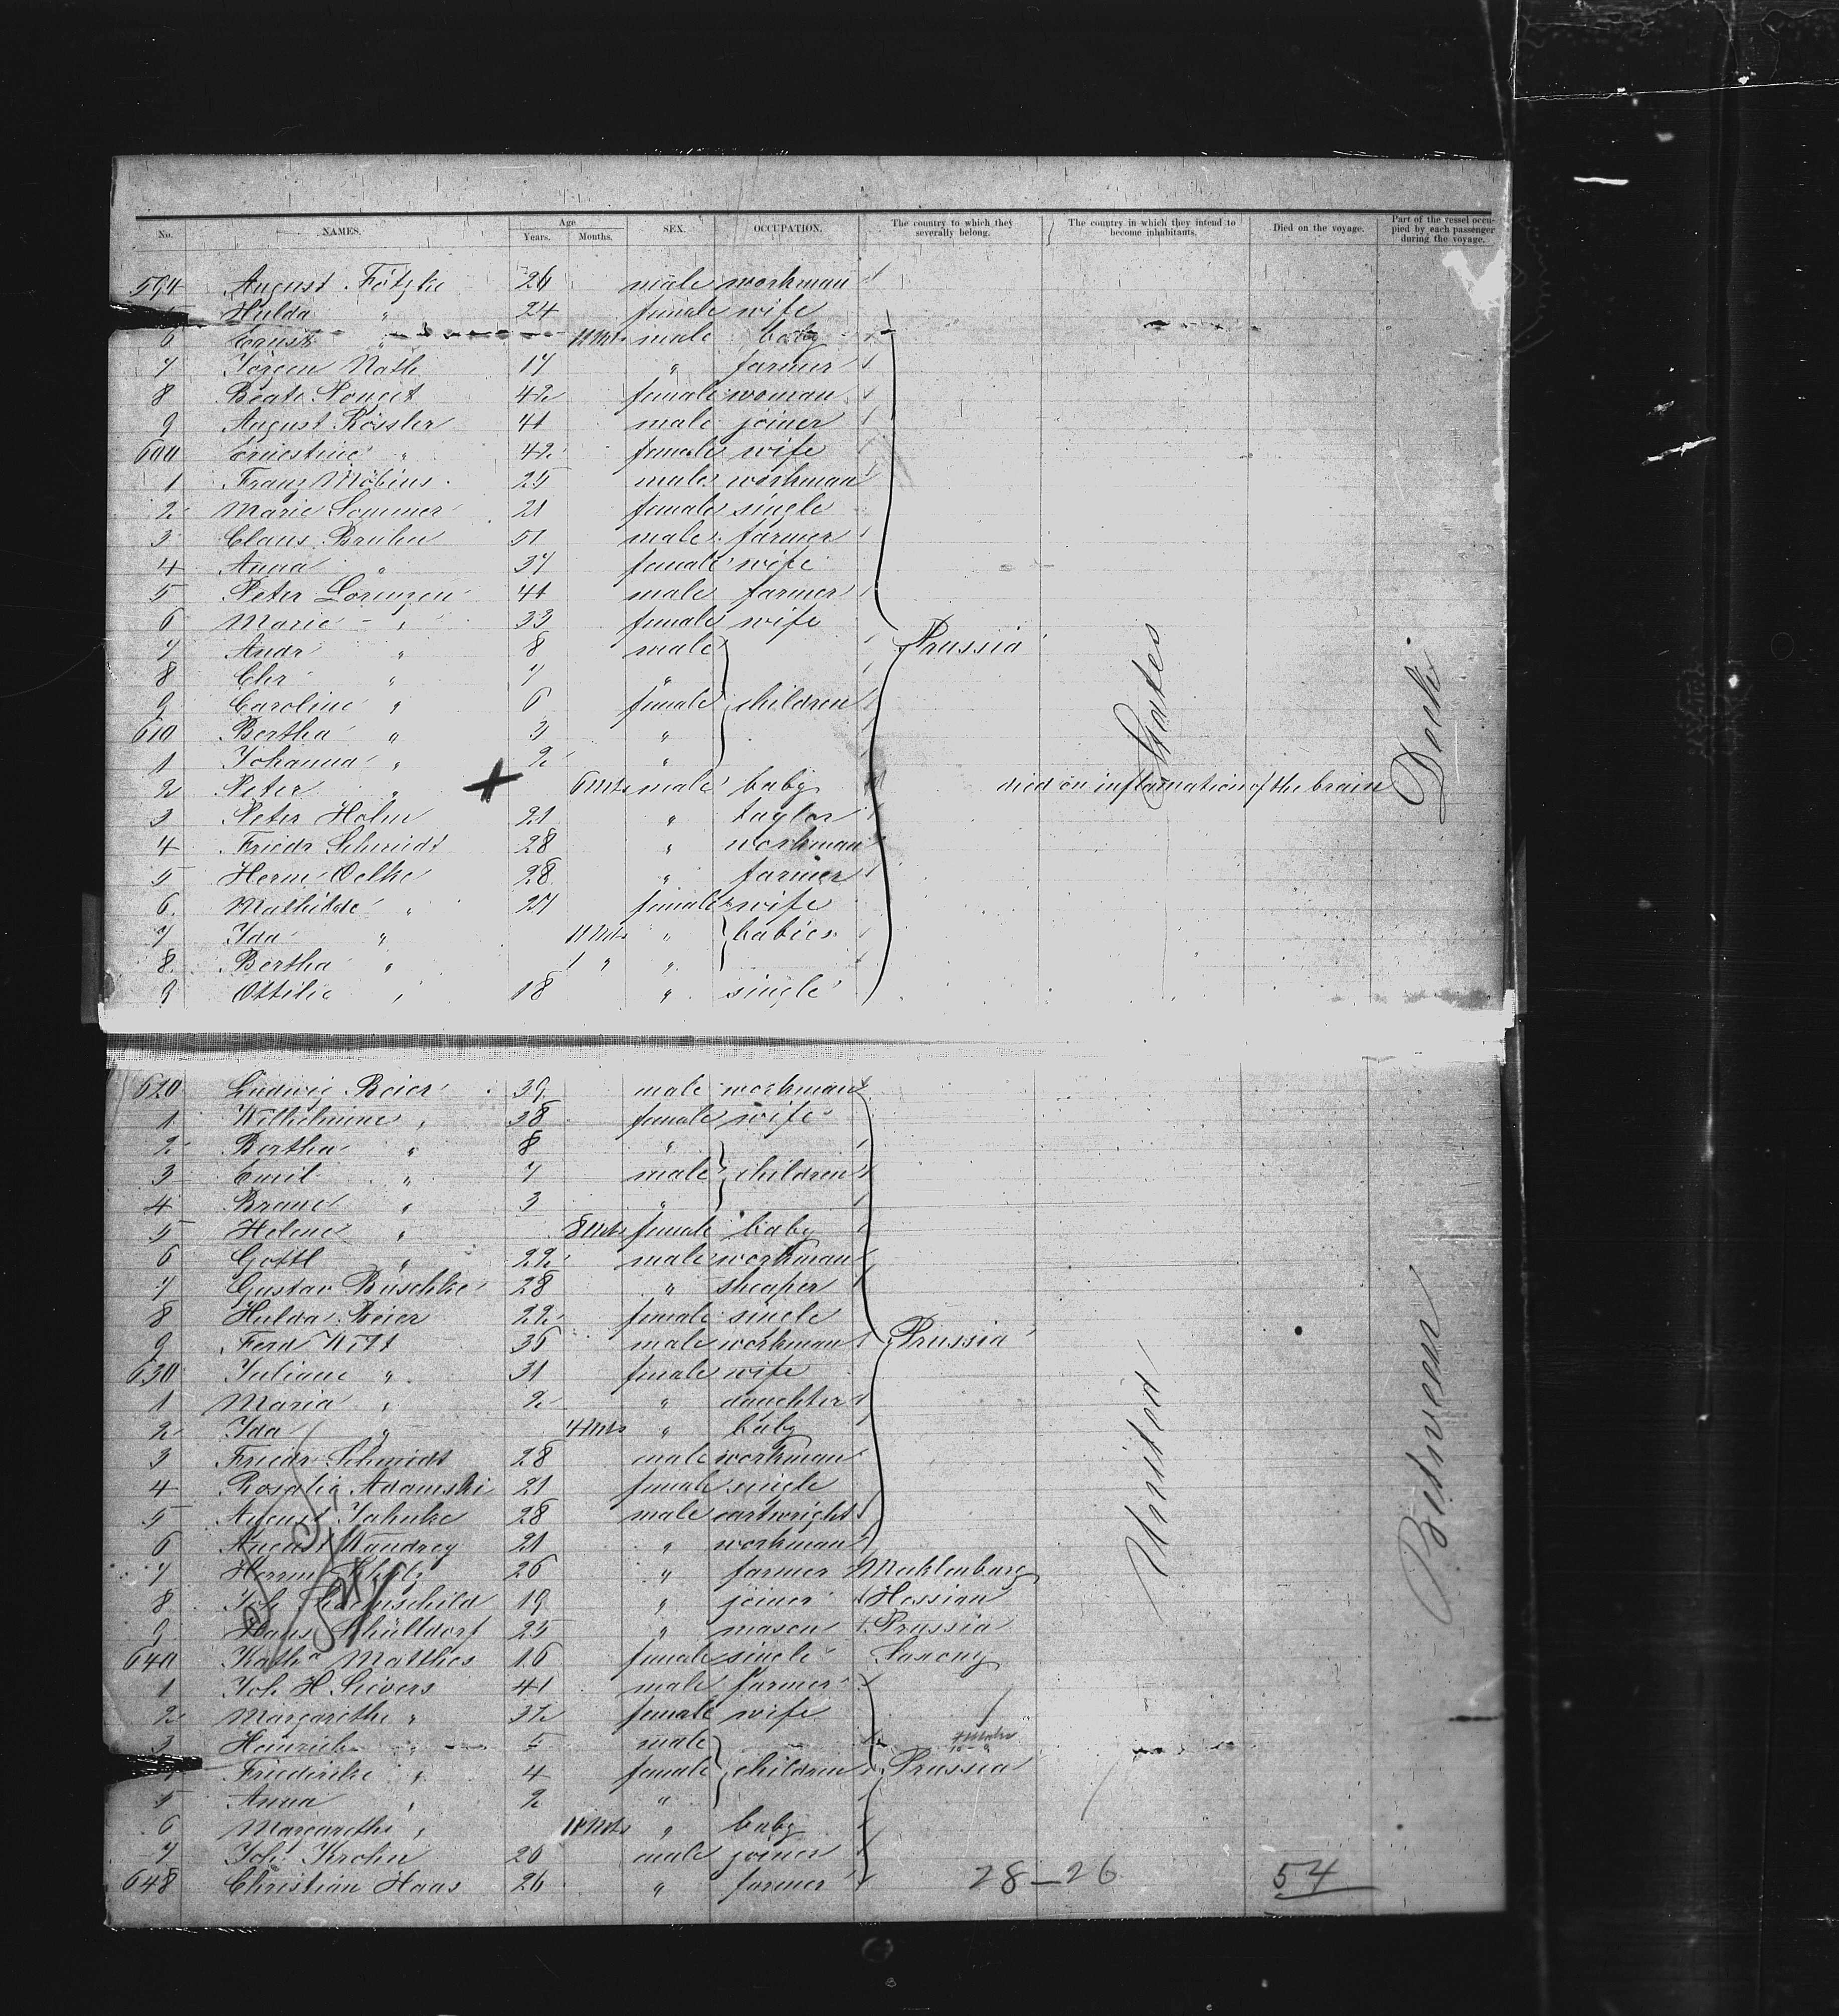 No. NAMES. Age Years. Months. SEX. OCCUPATION. The country to which they severally belong. The country in which they intend to become inhabitants. Died on the voyage. Part of the vessel occupied by each passenger during the voyage.
594 August Fötzke 26 male workman
Hulda " 24 female wife
6 Ernst " 11 Mts male baby
7 Jörgen Nath 17 " farmer
8 Beate 42 female woman
9 August Rössler 41 male joiner
600 Ernestine " 42 female wife
1 Franz Möbius 25 male workman
2 Marie Sommer 21 female single
3 Claus Bruhn 51 male farmer
4 Anna " 37 female wife
5 Peter Lorenzen 41 male farmer
6 Marie " 33 female wife
7 Andr " 8 male Prussia
8 Chr " 7 "
9 Caroline " 6 female children
610 Bertha " 3 "
1 Johanna " 2 "
2 Peter " 6 Mts male baby died on inflamation of the brain
3 Peter Holm 21 " taylor
4 Friedr Schmidt 28 " workman
5 Herm Oelke 28 " farmer
6 Mathilde " 27 female wife
7 Ida " 11 Mts " babies
8 Bertha " 1 " "
9 Ottilie " 18 " single
620 Ludwig Beier 39 male workman
1 Wilhelmine " 38 female wife
2 Bertha " 8 "
3 Emil " 7 male children
4 Brand " 3 "
5 Helene " 8 Mts female baby
6 Gottl " 22 male workman
7 Gustav Büschke 28 " sheaper
8 Hulda Beier 22 female single
9 Ferd Witt 36 male workman Prussia
630 Juliane " 31 female wife
1 Maria " 2 " daughter
2 Ida " 4 Mts " baby
3 Friedr Schmidt 28 male workman
4 Rosalie Adamski 21 female single
5 August Jahnke 28 male cartwright
6 August Wandrey 21 " workman
7 Herm 26 " farmer Mecklenburg
8 Joh 19 " joiner Hessian
9 Hans Schülldorf 25 " mason Prussia
640 Katha Matthes 16 female single Saxony
1 Joh H Sievers 41 male farmer
2 Margarethe " 32 female wife
3 Heinrich " 5 male
Friederike " 4 female children Prussia
5 Anna " 2 "
6 Margarethe " 11 Mts " baby
7 Joh Krohn 20 male joiner
648 Christian Haas 26 " farmer
28-26 54
United States
Between Deck